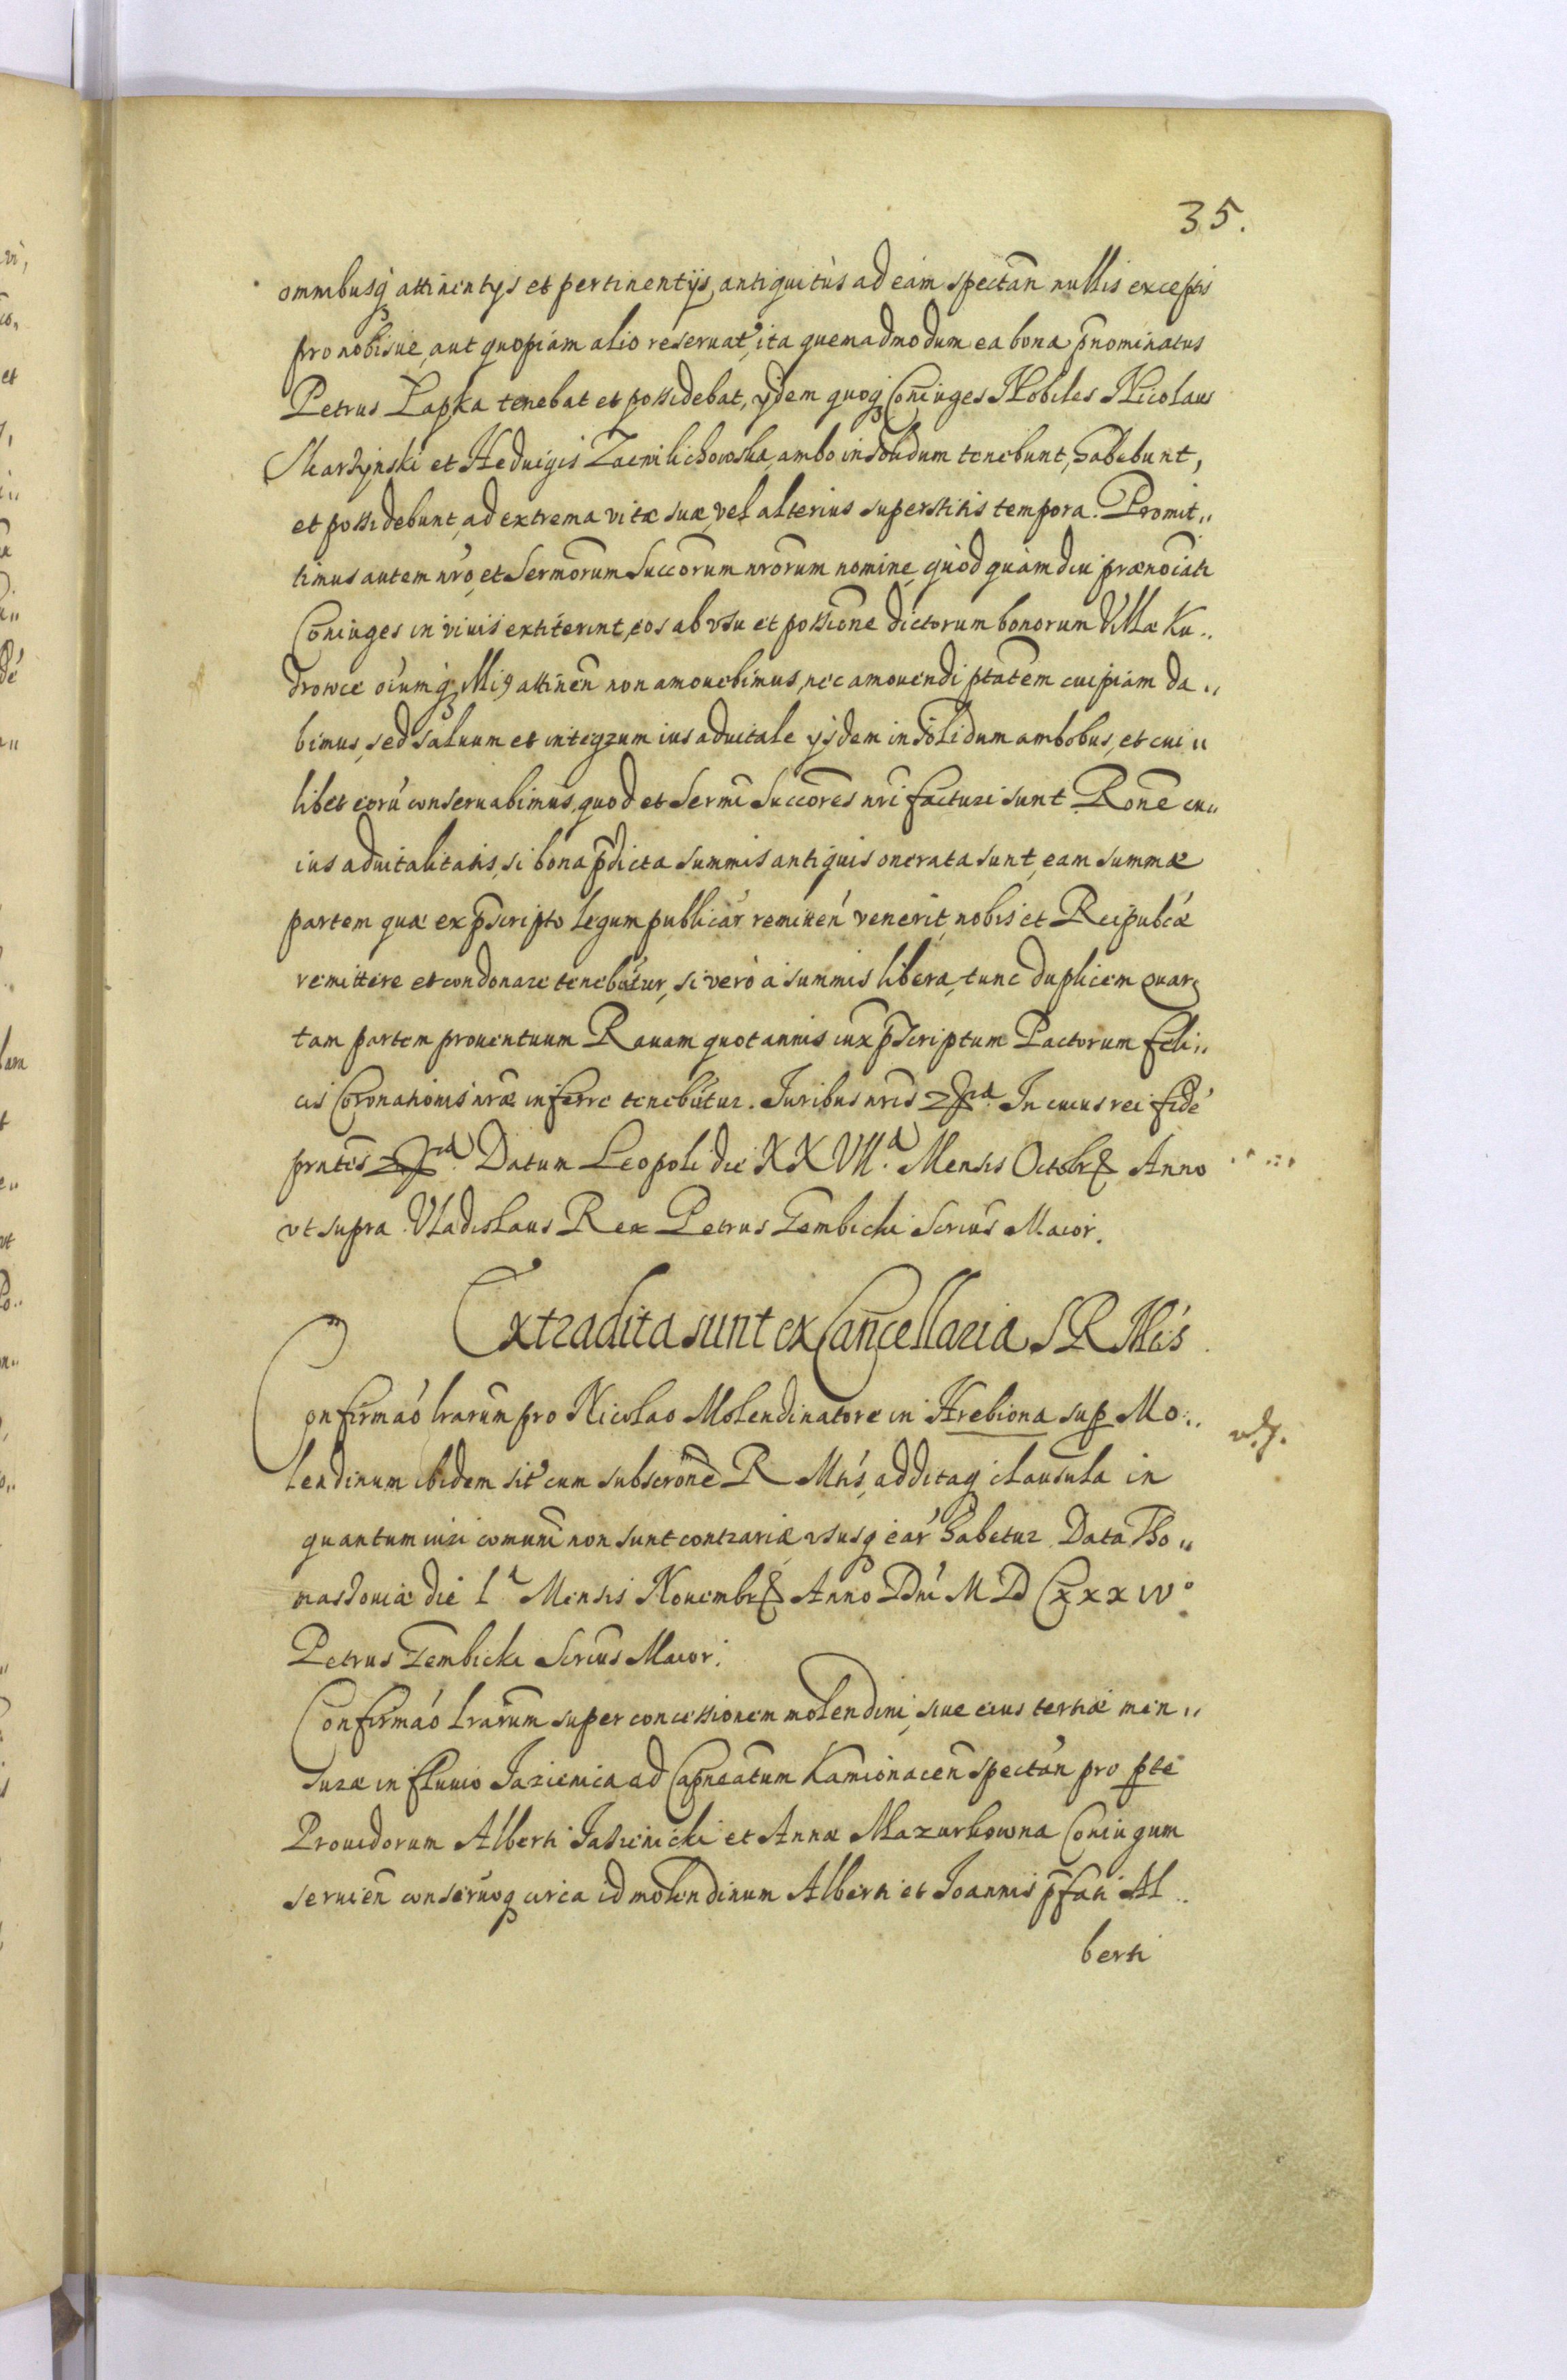 35.
omnibusq́ attinentys et pertinentijs, antiquitùs ad eam spectan̄ nullis exceptis
pro nobisue, aut quopiam alio reseruat', ita quemadmodum ea bona p̄nominatus
Petrus Łapka tenebat et possidebat, ijdem quoq₃ Coniuges Nobiles Nicolaus
Skarżynski et Heduigis Zacwilichowska, ambo in solidum tenebunt, habebunt,
et possidebunt, ad extrema vitæ suæ, vel alterius superstitis tempora. Promit„
timus autem nr̄o, et Sermorum Succorum nrorum nomine, quòd quàm diu prænoīati
Coniuges in viuis extiterint, eos ab vsu et possione dictorum bonorum Villæ Ku„
drowce oīumq₃ illi9 attinen̄ non amouebimus, nec amouendi ptatem cuipiam da„
bimus, sed saluum et integrum ius aduitale ijsdem in solidum ambobus, et cui„
libet eorū conseruabimus, quod et Sermī Succores nr̄i facturi sunt. Rone cu„
ius aduitalitatis, si bona p̄dicta summis antiquis onerata sunt, eam summæ
partem quæ ex p̄scripto legum publicar' remitten̄ venerit, nobis et Reipubcæ
remittere et condonare tenebūtur, si verò à summis libera, tunc duplicem quar„
tam partem prouentuum Rauam quotannis iux p̄scriptum Pactorum feli„
cis Coronationis nræ inferre tenebūtur. Iuribus nris In cuius rei fidē
pntes Datum Leopoli die XXVII.a Mensis Octobr Anno
vt supra. Vladislaus Rex Petrus Gembicki Scrius Maior.
Extradita sunt ex Cancellaria S R Mtis
Confirmaó lrarum pro Nicolao Molendinatore in Hrebiona sup Mo„
lendinum ibidem sit' cum subscrone R Mtis, additaq clausula in
quantum iuri comuni non sunt contrariæ, vsusq ear' habetur. Data Tho„
maszouiæ die 1a Mensis Nouembr Anno Dni M D CxxxIVo
Petrus Gembicki Scrius Maior.
Confirmaó lrarum super concessionem molendini, siue eius tertiæ men„
suræ in fluuio Jazienica ad Capneatum Kamionacen̄ spectan̄ pro pte
Prouidorum Alberti Jasienicki et Annæ Mazurkowna Coniugum
seruien̄ conseruoq circa id molendinum Alberti et Joannis p̄fati Al„
berti